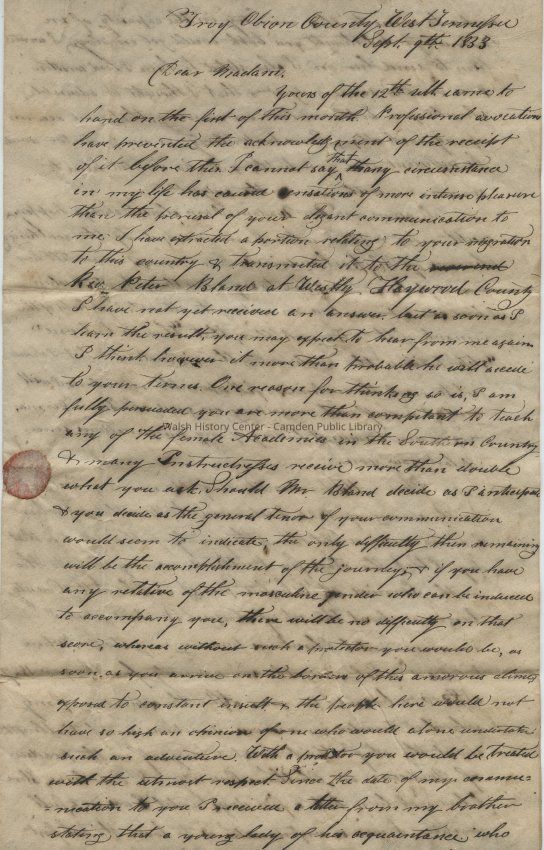 Troy Obion County, West Tennessee
Sept. 9th. 1833
Dear Madam,
Yours of the 12th ult came to
hand on the first of this month Professional avocations
have prevented the acknowledgment of the receipt
of it before this. I cannot say that any circumstance
in my life has caused sensations of more intense pleasure
than the perusal of your elegant communication to
me. I have extracted a portion relating to your migration
to this country & transmitted it to the
Rev. Peter Bland at Westly Haywood County
I have not yet received an answer but as soon as I
learn the result, you may expect to hear from me again
I think however it more than probable he will accede
to your terms. One reason for thinking so is, I am
fully persuaded you are more than compitent to teach
any of the female Academies in the Southern Country
& many Instructresses receive more than double
what you ask. Should Mr Bland decide as I anticipate
& you decide as the general tenor of your communication
would seem to indicate, the only difficulty then remaining
will be the accomplishment of the journey, & if you have
any relitive of the masculine gender who can be induced
to accompany you, there will be no difficulty on that
score, whereas without such a protector you would be, as
soon as you arrive on the borders of this amorous clime,
exposd to constant insult & the people here would not
have so high an opinion of one who would alone undertake
such an adventure. With a protector you would be treated
with the utmost respect Since the date of my commu-
-nication to you I received a letter from my brother
stating that a young lady of his acquaintance, who
Walsh History Center - Camden Public Library